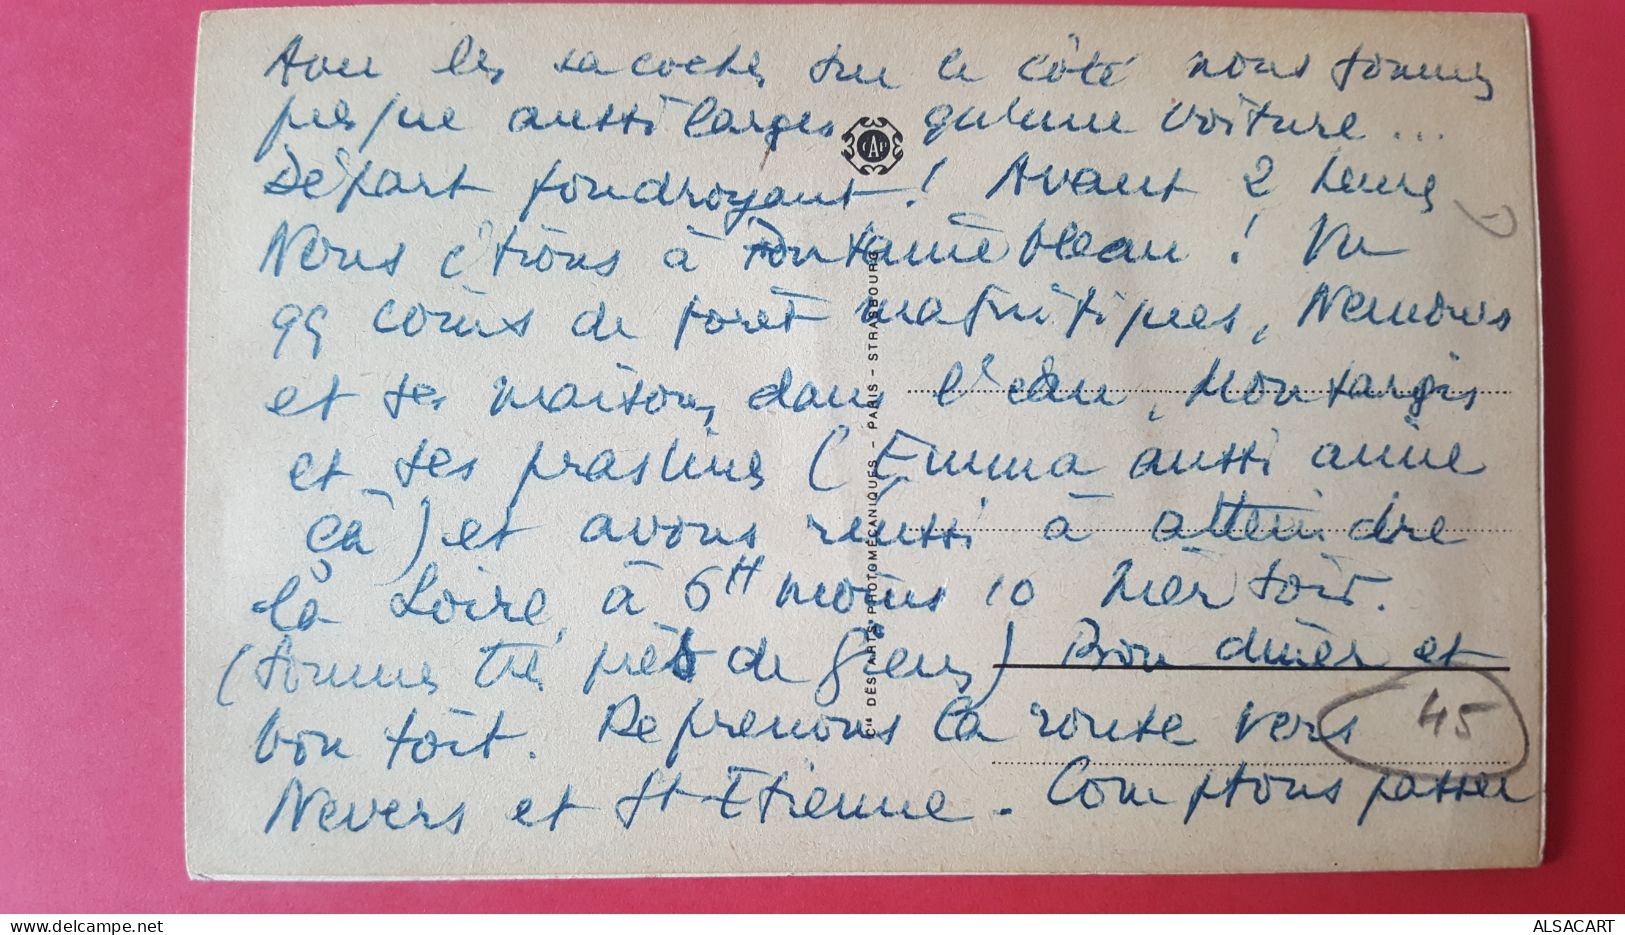 Avec les sacoches sur le côté nous sommes
presque aussi larges qu'une voiture...
Départ foudroyant ! Avant 2 heures
Nous étions à Fontainebleau ! Vu
99 coins de forêt magnifiques, Nemours
et ses maisons dans l'eau, Montargis
et ses praslines (Emma aussi aime
ça) et avons réussi à atteindre
la Loire, à 6H moins 10 hier soir.
(sommes très près de Gien) Bon dîner et
bon toit. Reprenons la route vers
45
Nevers et St-Etienne - Comptons passer
CAP
Cie DES ARTS PHOTOMÉCANIQUES - PARIS - STRASBOURG
ALSACART